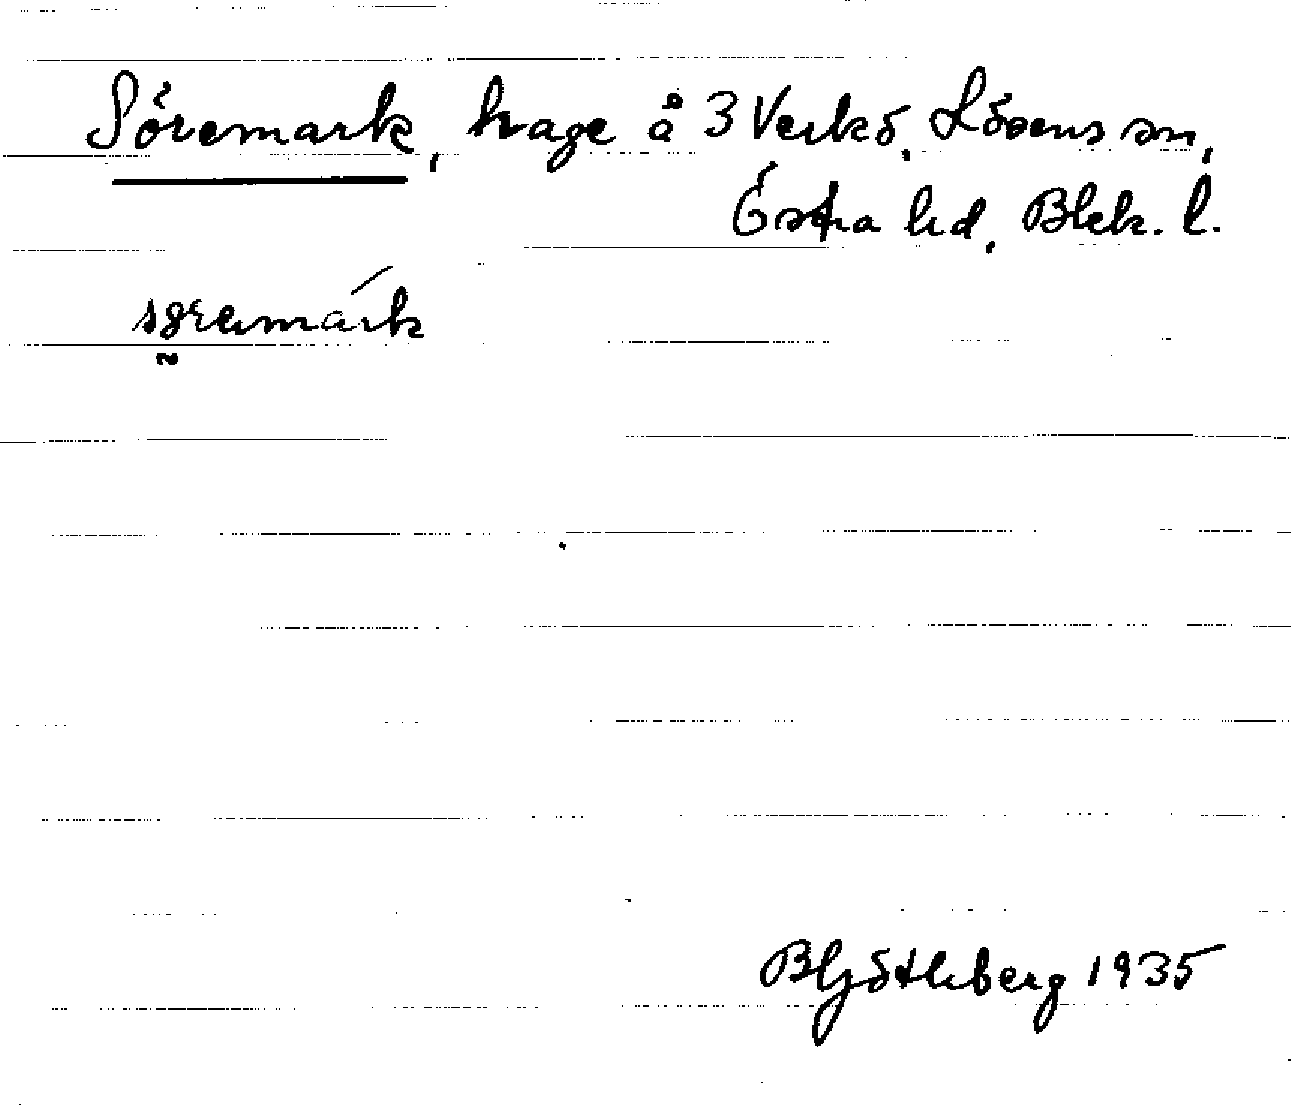 Söremark, hage å 3 Verkö, Lösens sn,
Östra hd, Blek. l.
sɞremárk
B Götleberg 1935